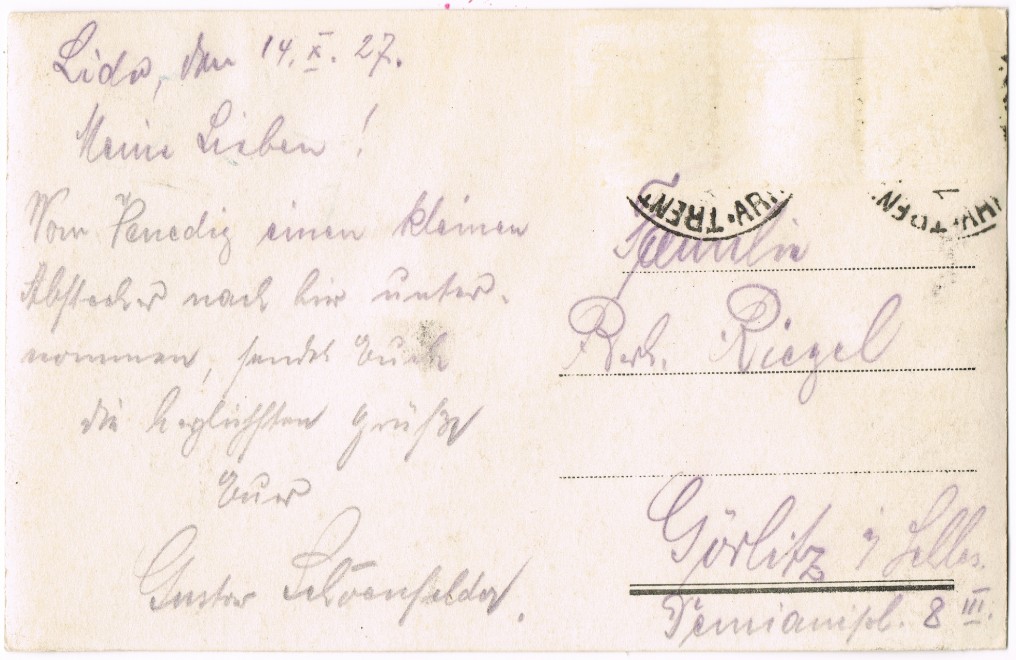 Lido, den 14. X. 27.
Meine Lieben!
Von Venedig einen kleinen
Abstecher nach hier unter-
nommen, sendet Euch
die herzlichsten Grüße
Euer
Gustav Schoenfelder.
TRENT • AR
Familie
Rich. Riegel
Görlitz i/ Schles.
8 III.